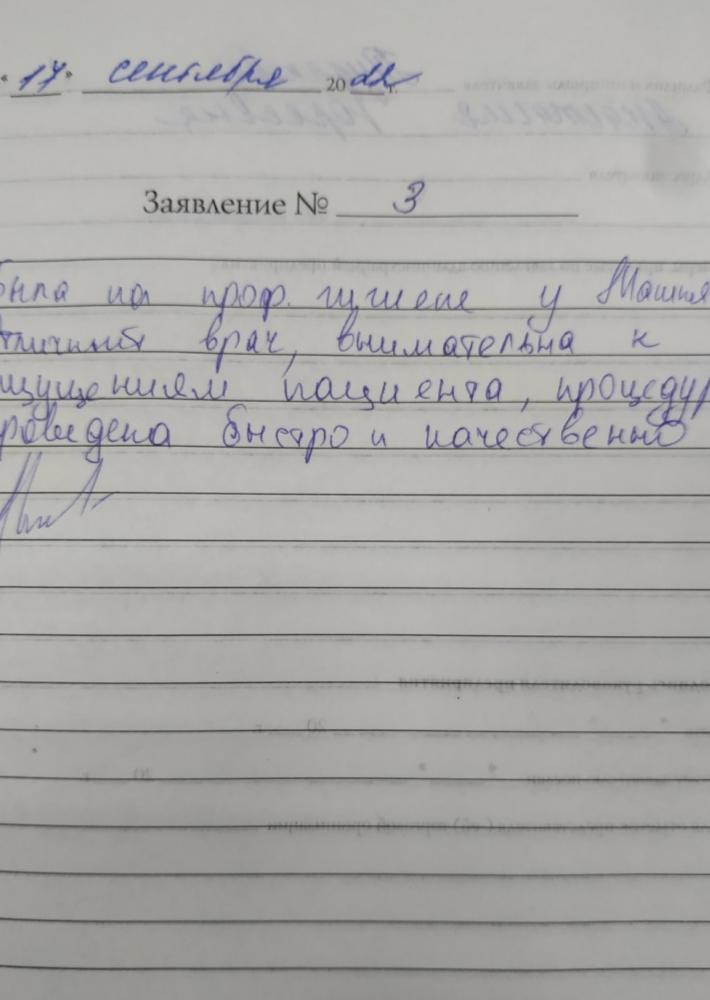 "17" сентября 2022 г.
Заявление № 3
была на проф. гигиене у
отличный врач, внимательна к
ощущениям пациента, процедур
роведена быстро и качественно